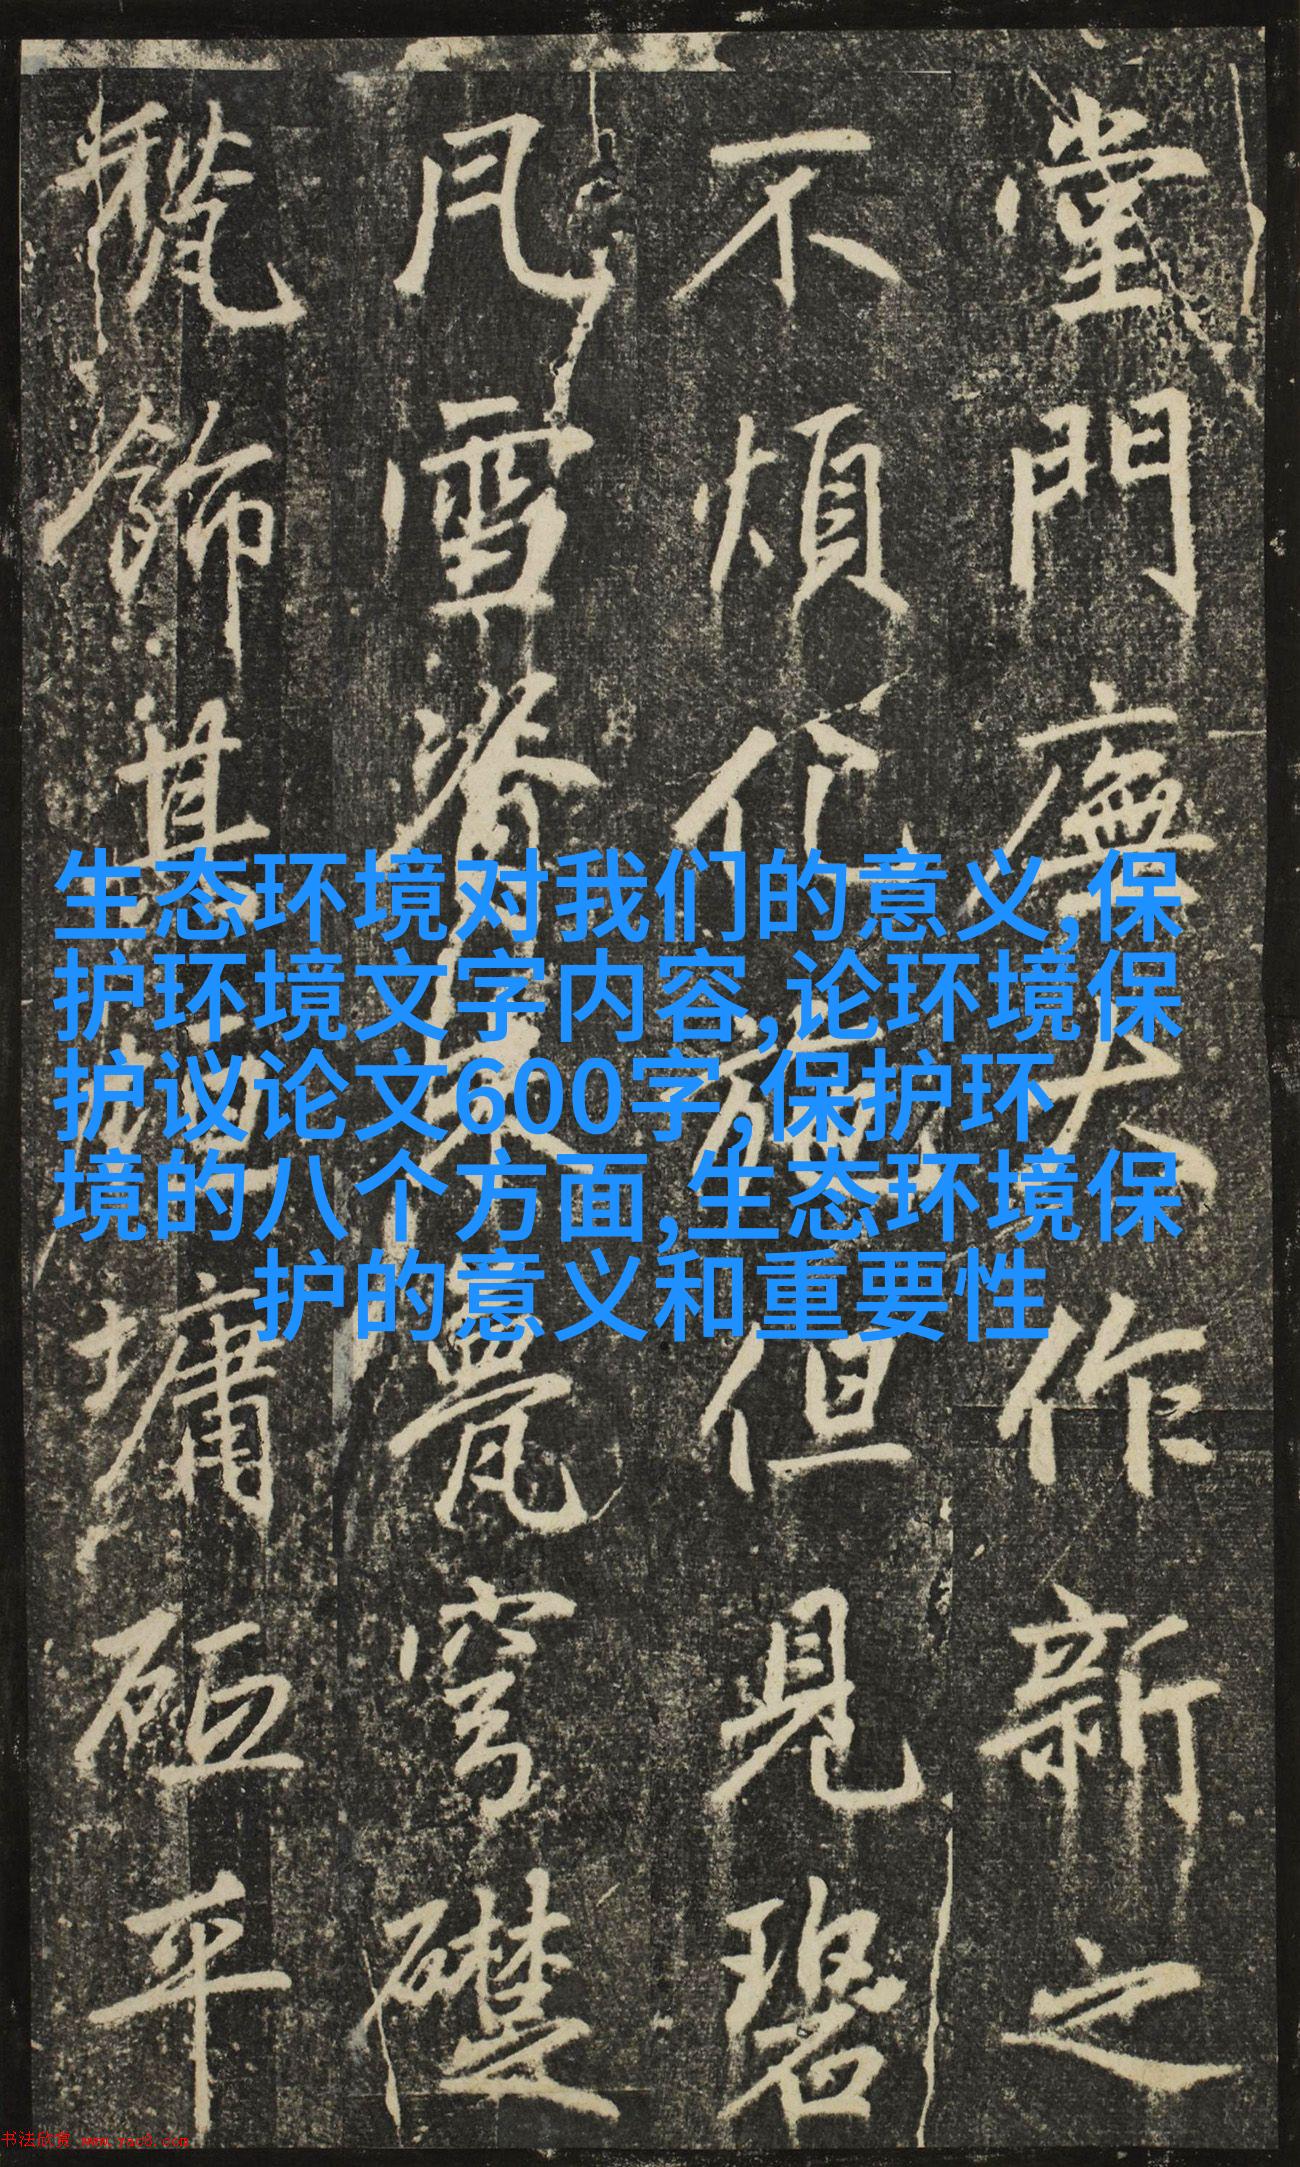 堂門廡大作新之
不煩化施但見碧
瓦雪脊甍穹礎
飾其垣墉砥平
生态环境对我们的意义,保
护环境文字内容,论环境保
护议论文600字,保护环
境的八个方面,生态环境保
护的意义和重要性
书法欣赏 www.yac8.com